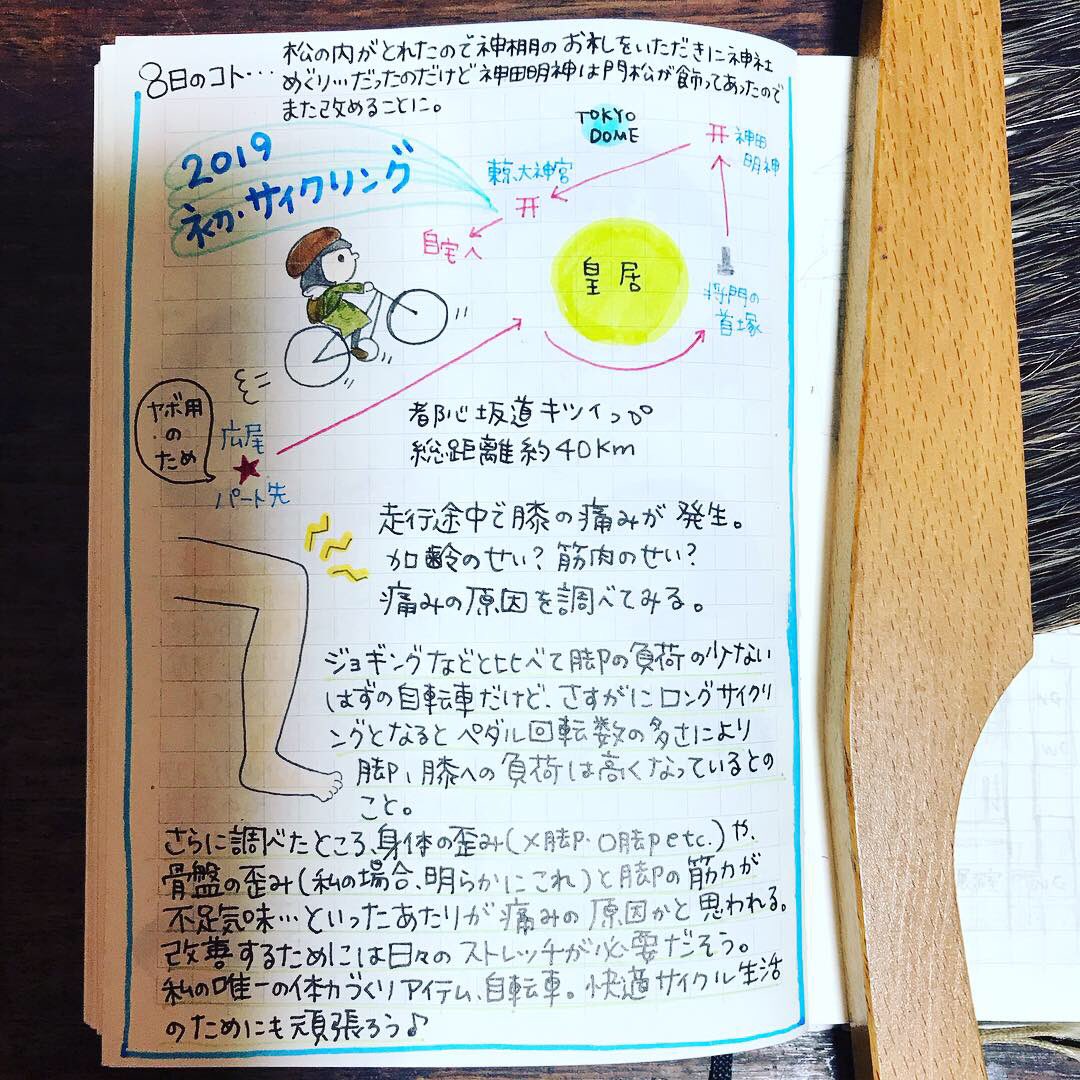 8日のコト…
松の内がとれたので神棚のお札をいただきに神社
めぐり…だったのだけど神田明神は門松が飾ってあったので
また改めることに。
TOKYO
DOME
神田
明神
2019
初・サイクリング
東京大神宮
自宅へ
皇居
将門の
首塚
ヤボ用
の
ため
広尾
パート先
都心坂道キツイっ
総距離約40Km
走行途中で膝の痛みが発生。
加齢のせい?筋肉のせい?
痛みの原因を調べてみる。
ジョギングなどと比べて脚の負荷の少ない
はずの自転車だけど、さすがにロングサイクリ
ングとなるとペダル回転数の多さにより
脚、膝への負荷は高くなっているとの
こと。
さらに調べたところ、身体の歪み(X脚・O脚etc.)や、
骨盤の歪み(私の場合、明らかにこれ)と脚の筋力が
不足気味…といったあたりが痛みの原因かと思われる。
改善するためには日々のストレッチが必要だそう。
私の唯一の体力づくりアイテム、自転車。快適サイクル生活
のためにも頑張ろう♪